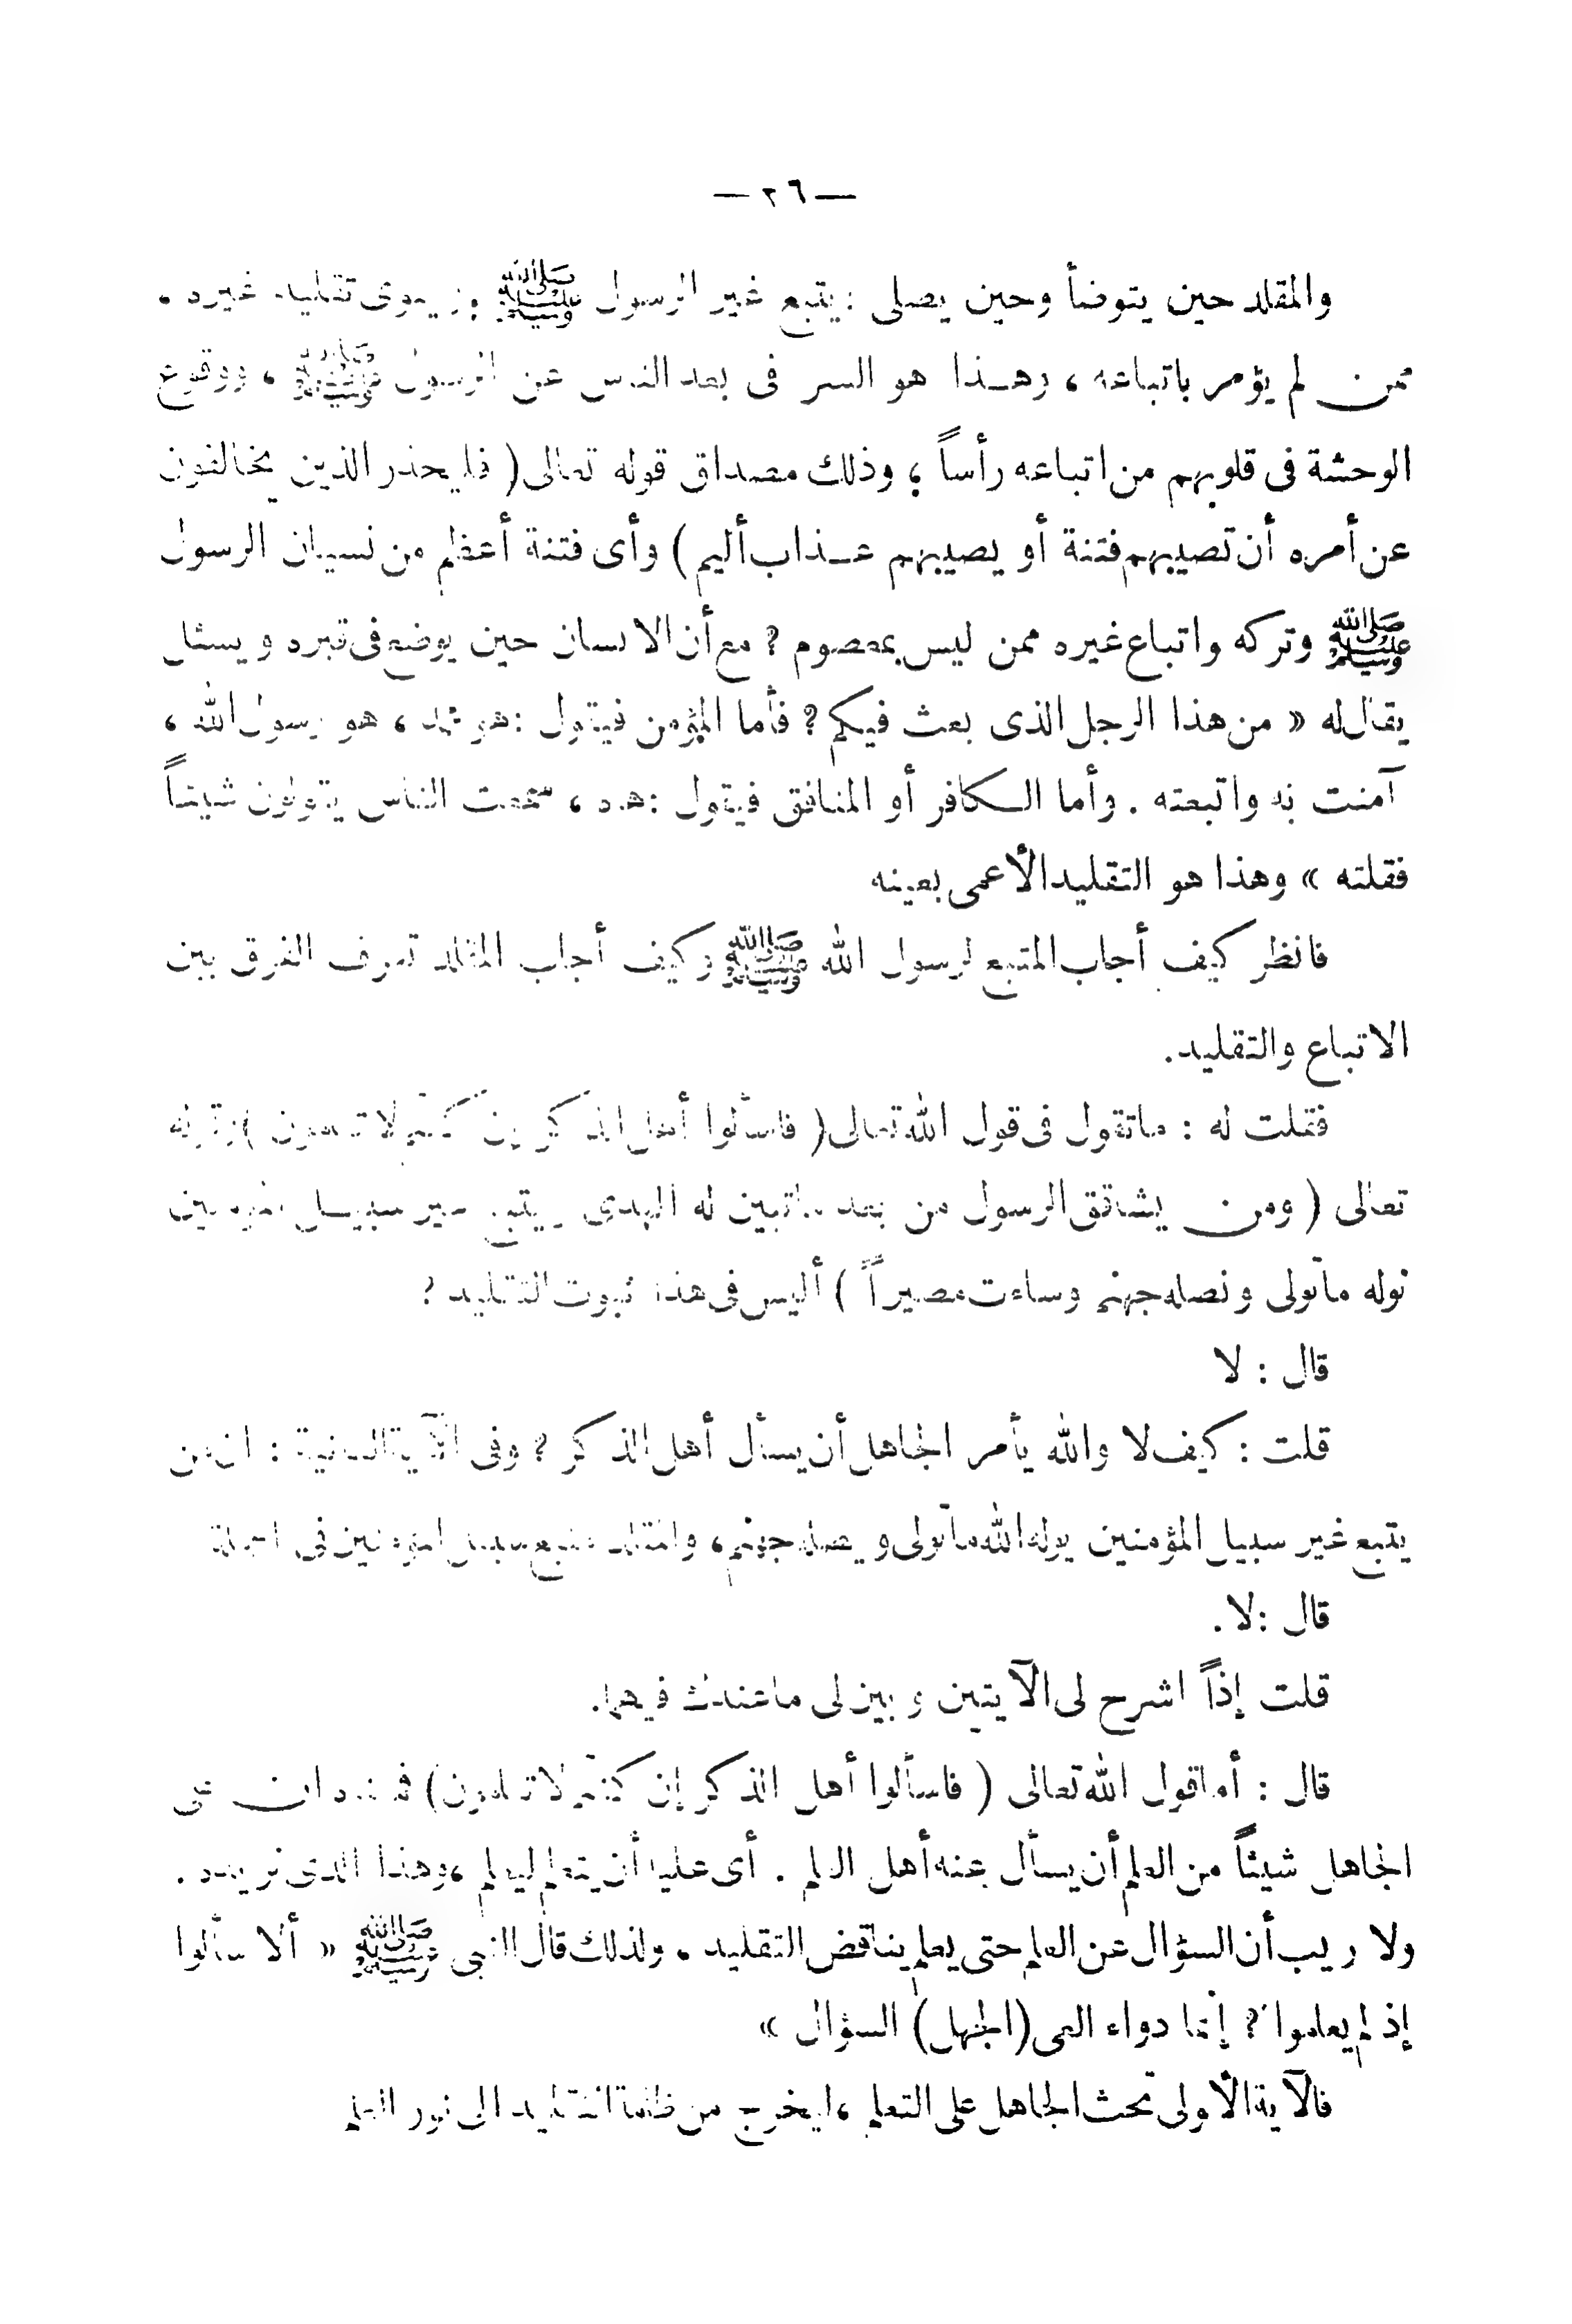 — ٢٦ —
والمقلد حين يتوضأ وحين يصلى : يتبع غير الرسول ﷺ وينوى تقليد غيره ،
ممن لم يؤمر باتباعه ، وهذا هو السر فى بعد الناس عن الرسول ﷺ ، ووقوع
الوحشة فى قلوبهم من اتباعه رأساً ؛ وذلك مصداق قوله تعالى ( فليحذر الذين يخالفون
عن أمره أن تصيبهم فتنة أو يصيبهم عذاب أليم ) وأى فتنة أعظم من نسيان الرسول
ﷺ وتركه واتباع غيره ممن ليس بمعصوم ? مع أن الانسان حين يوضع فى قبره ويسئل
يقال له « من هذا الرجل الذى بعث فيكم ? فأما المؤمن فيقول : هو محمد ، هو رسول الله ،
آمنت به واتبعته . وأما الكافر أو المنافق فيقول : هاه ، سمعت الناس يقولون شيئاً
فقلته » وهذا هو التقليد الأعمى بعينه
فانظر كيف أجاب المتبع لرسول الله ﷺ وكيف أجاب المقلد تعرف الفرق بين
الاتباع والتقليد .
فقلت له : ماتقول فى قول الله تعالى ( فاسألوا أهل الذكر إن كنتم لا تعلمون ) وقوله
تعالى ( ومن يشاقق الرسول من بعد ماتبين له الهدى ويتبع غير سبيل المؤمنين
نوله ماتولى ونصله جهنم وساءت مصيراً ) أليس فى هذا ثبوت التقليد ?
قال : لا
قلت : كيف لا والله يأمر الجاهل أن يسأل أهل الذكر ? وفى الآية الثانية : ان من
يتبع غير سبيل المؤمنين يوله الله ماتولى ويصله جهنم ، والمقلد متبع سبيل المؤمنين فى
قال : لا .
قلت إذاً اشرح لى الآيتين وبين لى ماعندك فيهما .
قال : أما قول الله تعالى ( فاسألوا أهل الذكر إن كنتم لا تعلمون ) على
الجاهل شيئاً من العلم أن يسأل عنه أهل العلم . أى عليه أن يتعلم ليعلم ، وهذا الذى نريده .
ولا ريب أن السؤال عن العلم حتى يعلم يناقض التقليد ، ولذلك قال النبى ﷺ « ألا سألوا
إذ لم يعلموا ? إنما دواء العى ( الجهل ) السؤال »
فالآية الأولى تحث الجاهل على التعلم ، ليخرج من ظلمة التقليد الى نور العلم